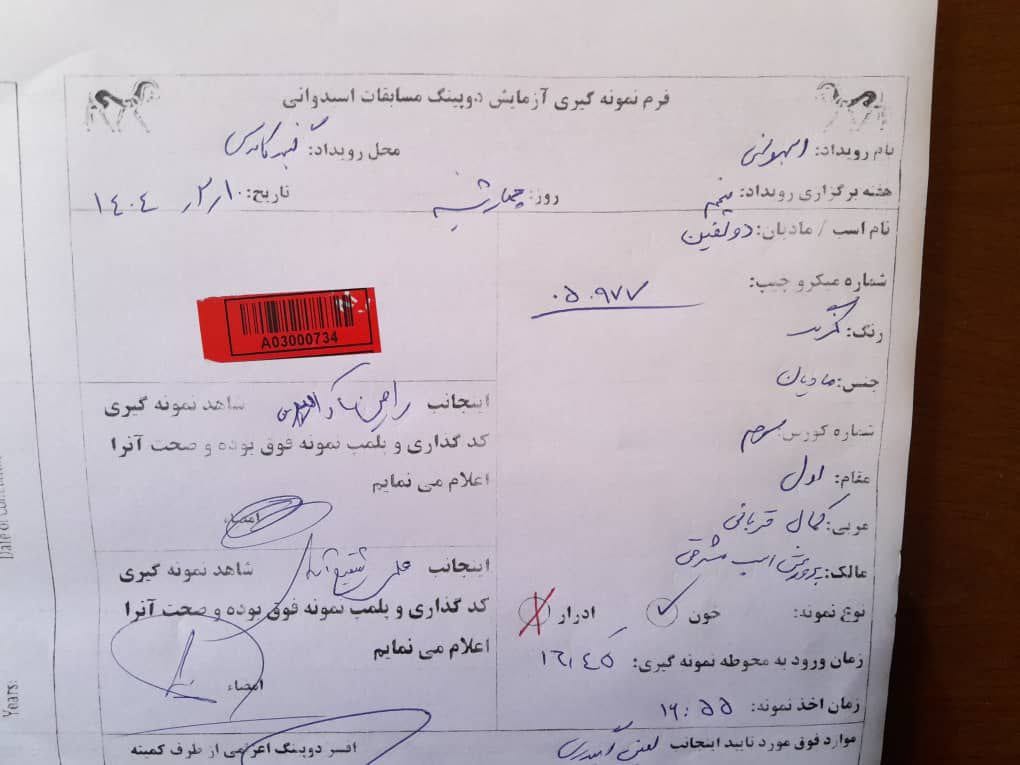 فرم نمونه گیری آزمایش دوپینگ مسابقات اسبدوانی
نام رویداد: اسبدوانی
محل رویداد: گنبد کاووس
هفته برگزاری رویداد: پنجم
روز: چهارشنبه
تاریخ: ۱۰ / ۲ / ۱۴۰۴
نام اسب / مادیان: دولفین
شماره میکرو چیپ: ۰۵۰۹۷۷
رنگ: کرند
جنس: مادیان
شماره کورس: سوم
مقام: اول
مربی: کمال قربانی
مالک: پرورش اسب شرق
نوع نمونه: خون ادرار
زمان ورود به محوطه نمونه گیری: ۱۶:۴۵
زمان اخذ نمونه: ۱۶:۵۵
موارد فوق مورد تایید اینجانب
A03000734
اینجانب شاهد نمونه گیری
کد گذاری و پلمب نمونه فوق بوده و صحت آنرا
اعلام می نمایم
امضاء
اینجانب علی شاهد نمونه گیری
کد گذاری و پلمب نمونه فوق بوده و صحت آنرا
اعلام می نمایم
امضاء
افسر دوپینگ اعزامی از طرف کمیته
Years: